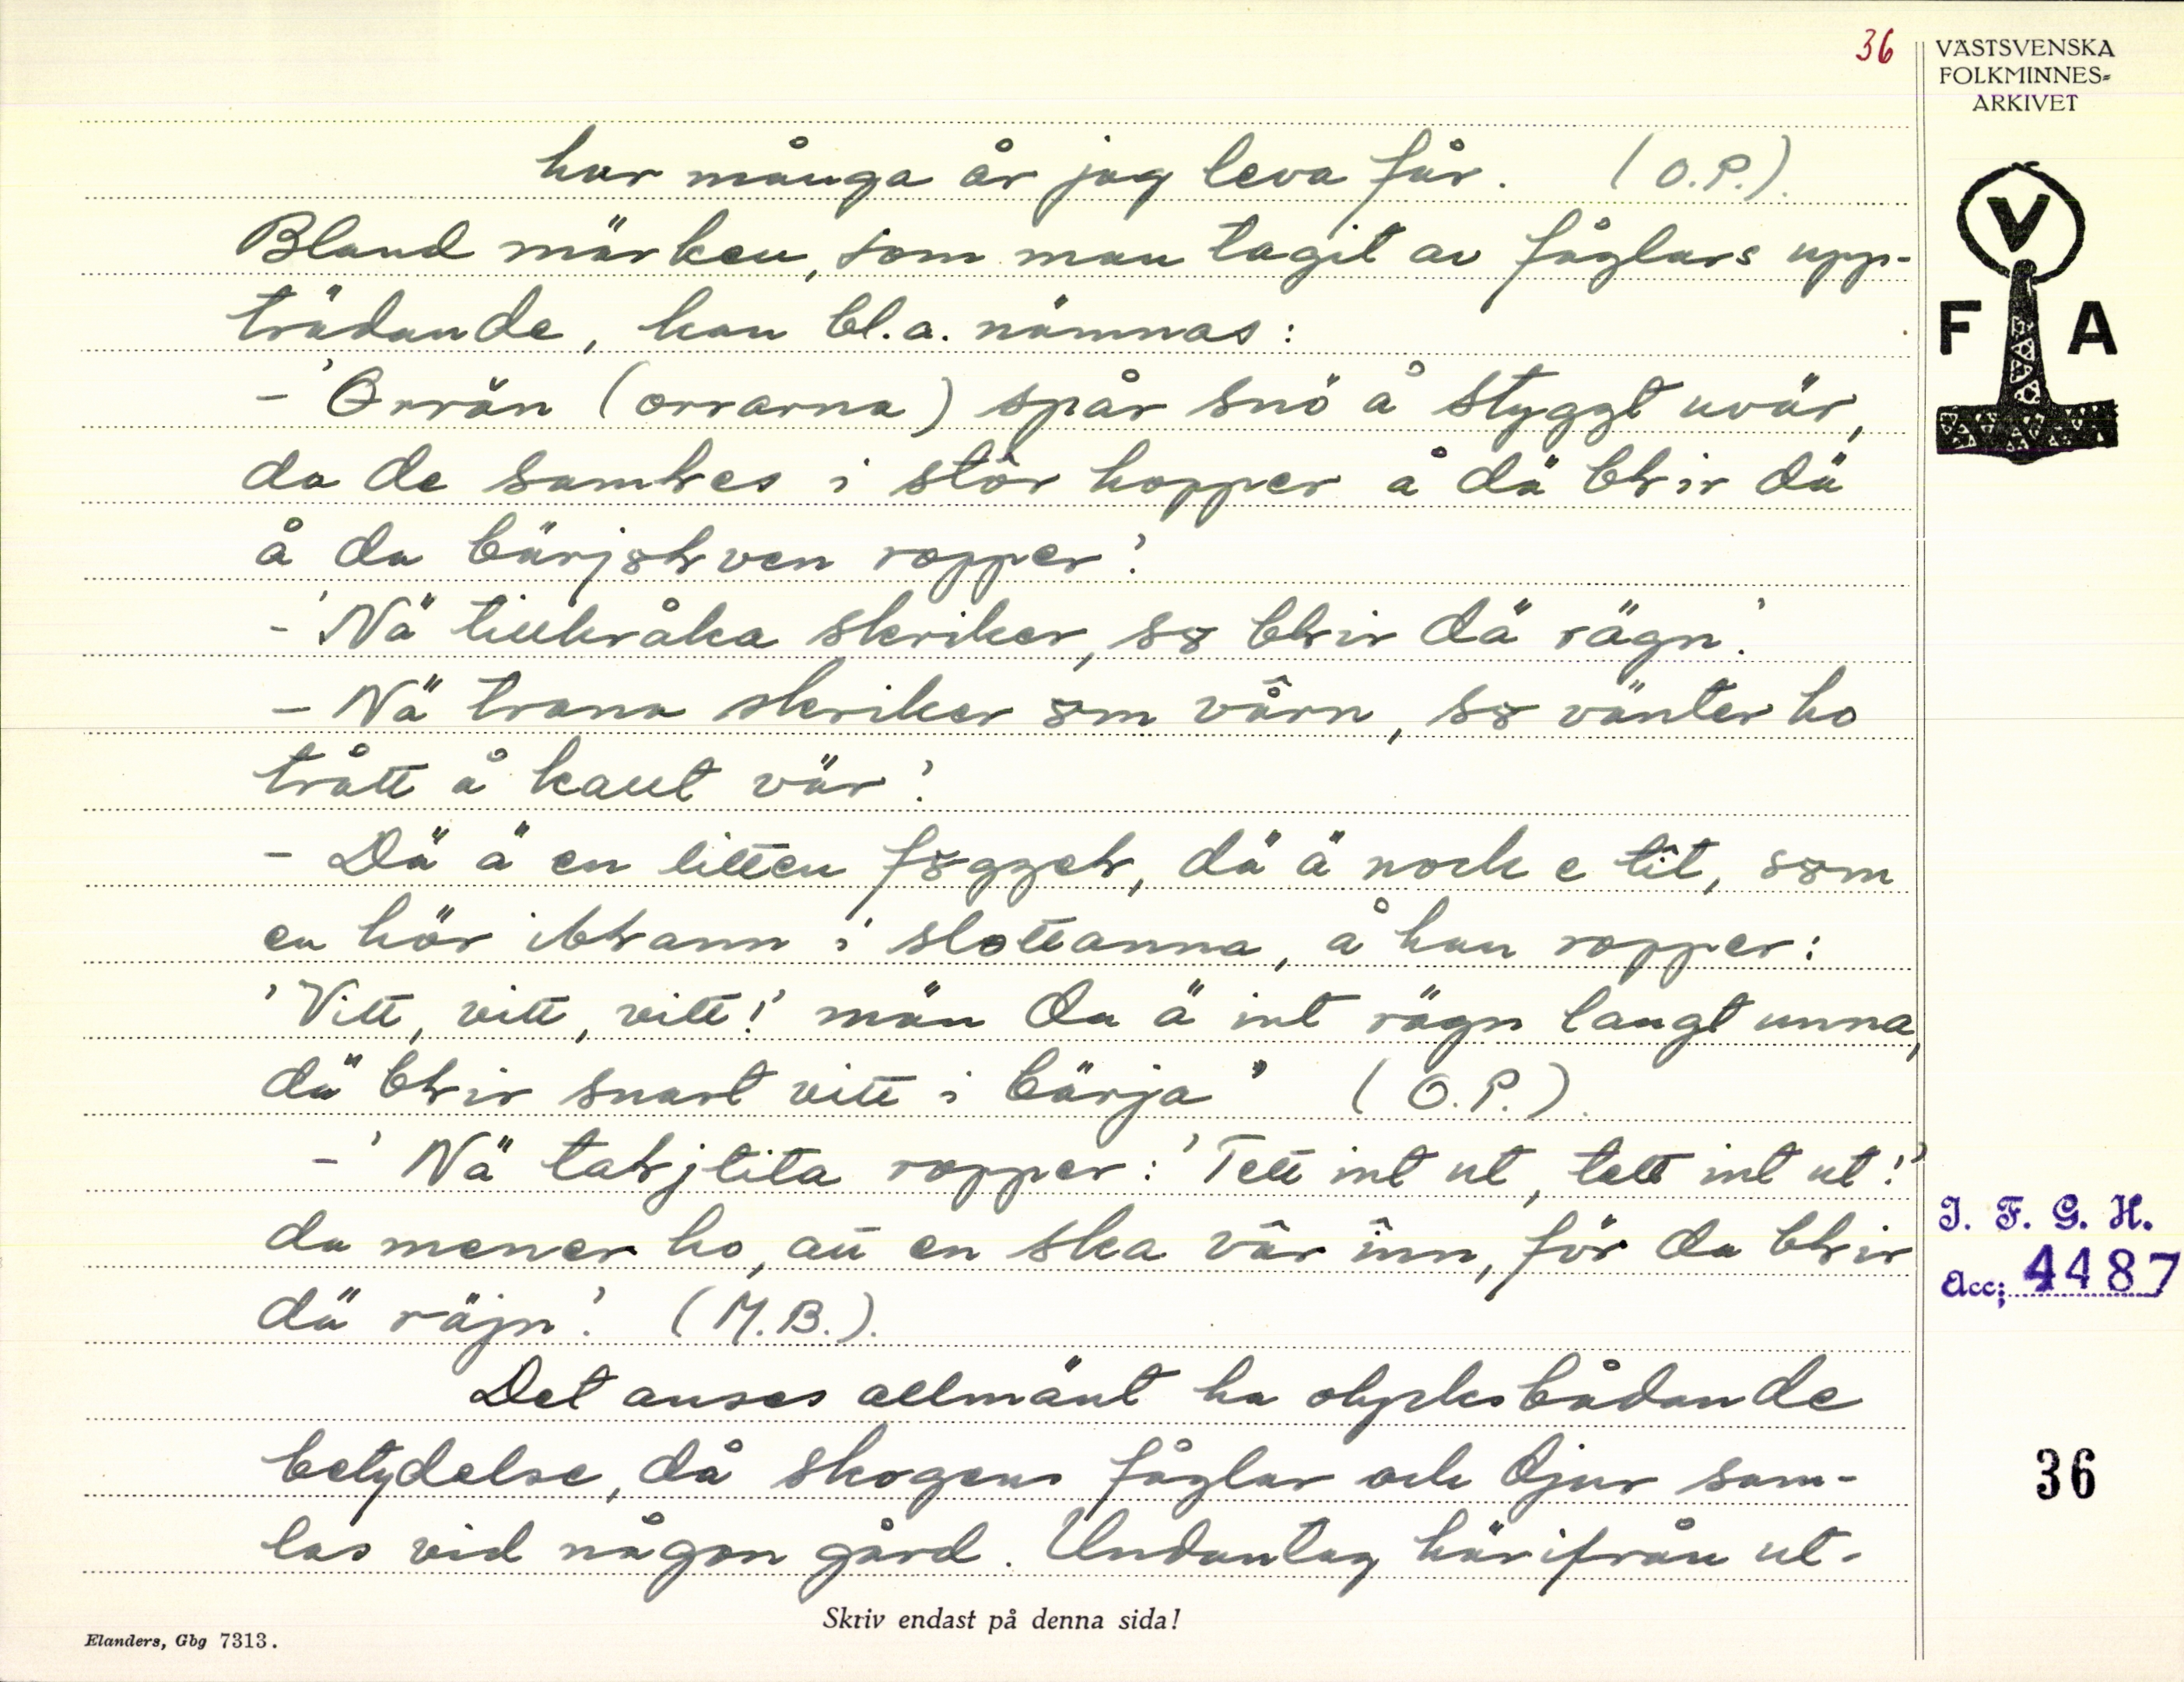 36
VÄSTSVENSKA
FOLKMINNES=
ARKIVET
hur många år jag leva får. (O.P.).
Bland märken, som man tagit av fåglars upp-
trädande, kan bl.a. nämnas:
- 'Orrän (orrarna) spår snö å styggt uvär,
da de samɫes i stôr hopper å dä bɫir dä
å da bärjɤɫven ropper'.
- 'Nä tillkråka skriker, sɤ bɫir dä rägn'.
- Nä trana skriker ɤm vårn, sɤ vänter ho
trått å kallt vär'.
- Dä ä en litten fɤggeɫ, dä ä nock e tît, sɤm
en hör ibɫann i slottanna, å han ropper:
'Vitt, vitt, vitt!' män da ä int rägn langt unna,
dä bɫir snart vitt i bärja" (O.P.).
- 'Nä taɫjtita ropper: 'Tett int ut, tett int ut!'
da mener ho, att en ska vâr înn, för da bɫir
dä räjn'. (M.B.).
Det anses allmänt ha olycksbådande
betydelse, då skogens fåglar och djur sam-
las vid någon gård. Undantag härifrån ut-
V
F A
I. F. G. H.
Acc; 4487
36
Skriv endast på denna sida!
Elanders, Gbg 7313.